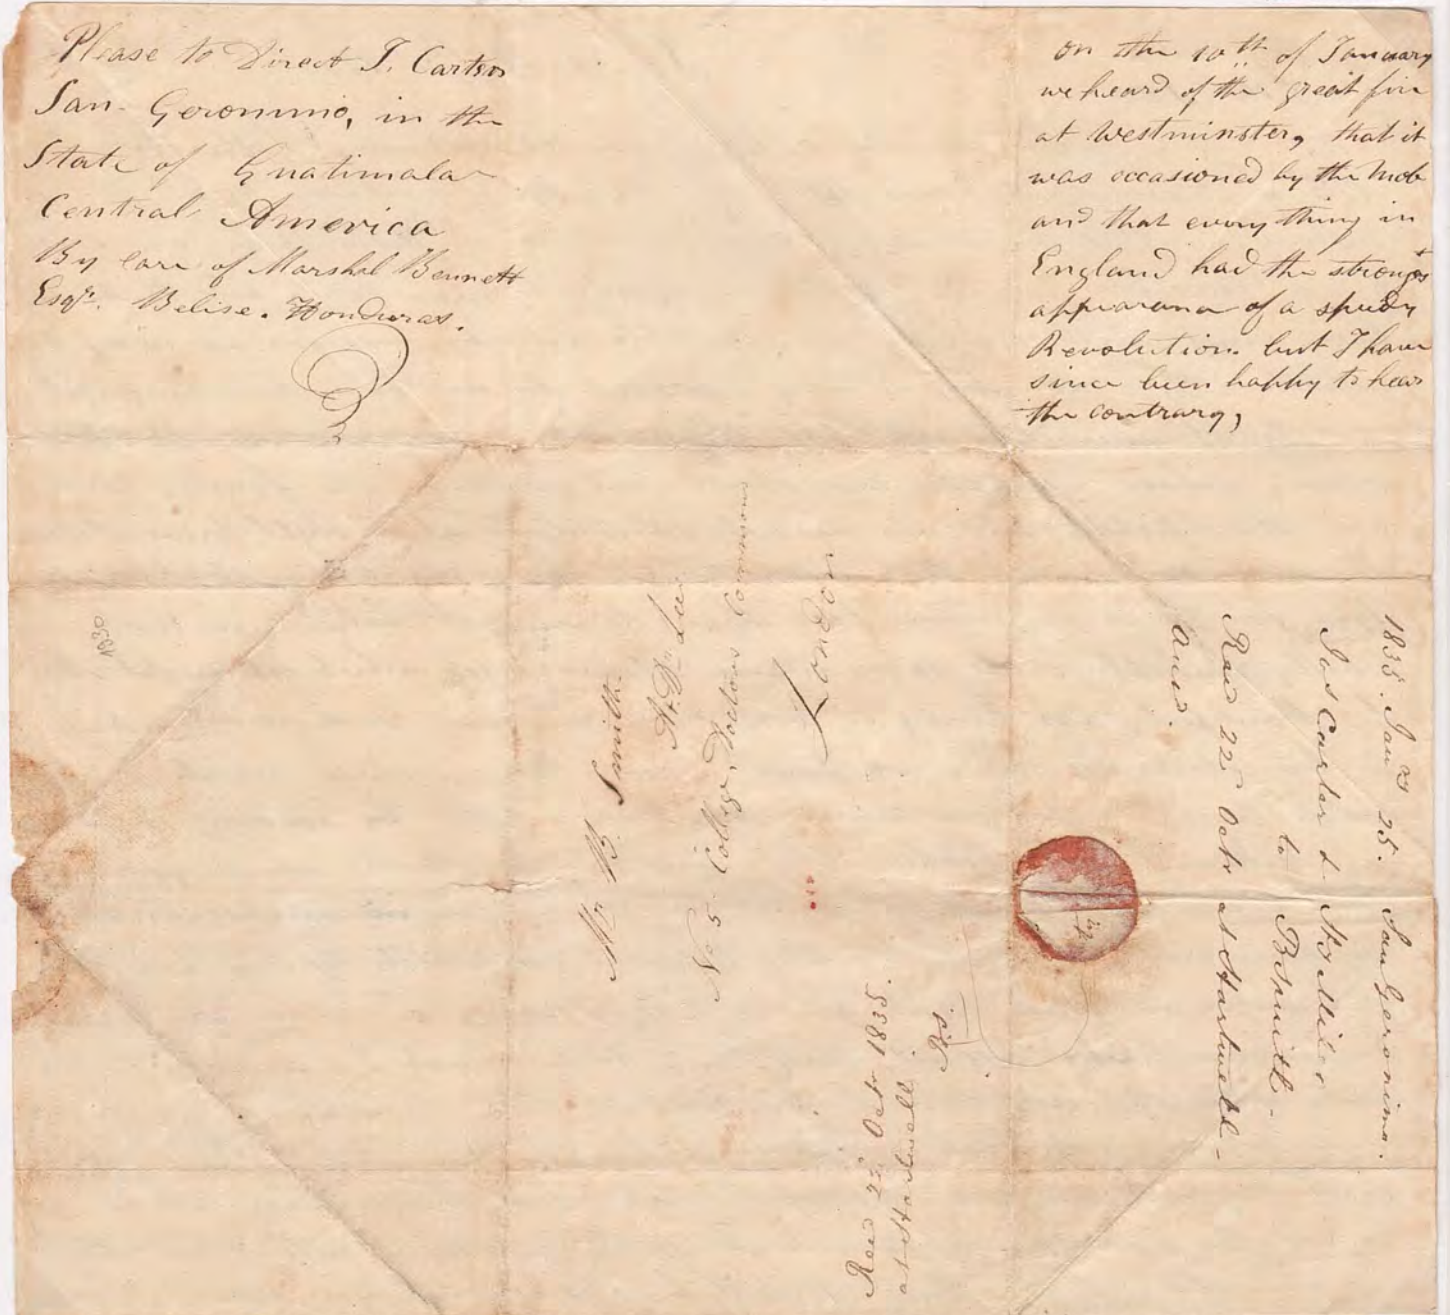 Please to Direct J. Carter
San Geronimo, in the
State of Guatimala
Central America
By care of Marshal Bennett
Esqr. Belise. Honduras.
on the 10th of January
we heard of the great fire
at Westminster, that it
was occasioned by the Mob
and that every thing in
England had the strongest
appearance of a speedy
Revolution. but I have
since been happy to hear
the contrary,
1830
Mr B. Smith
At Dr Lee
No 5 College, Doctors Commons
London
Recd 22 Octr 1835.
at Hartwell
1835. Jany 25. San Geronimo.
Jos Carter & Miller
to B Smith -
Recd 22 Octr at Hartwell -
Ansd.